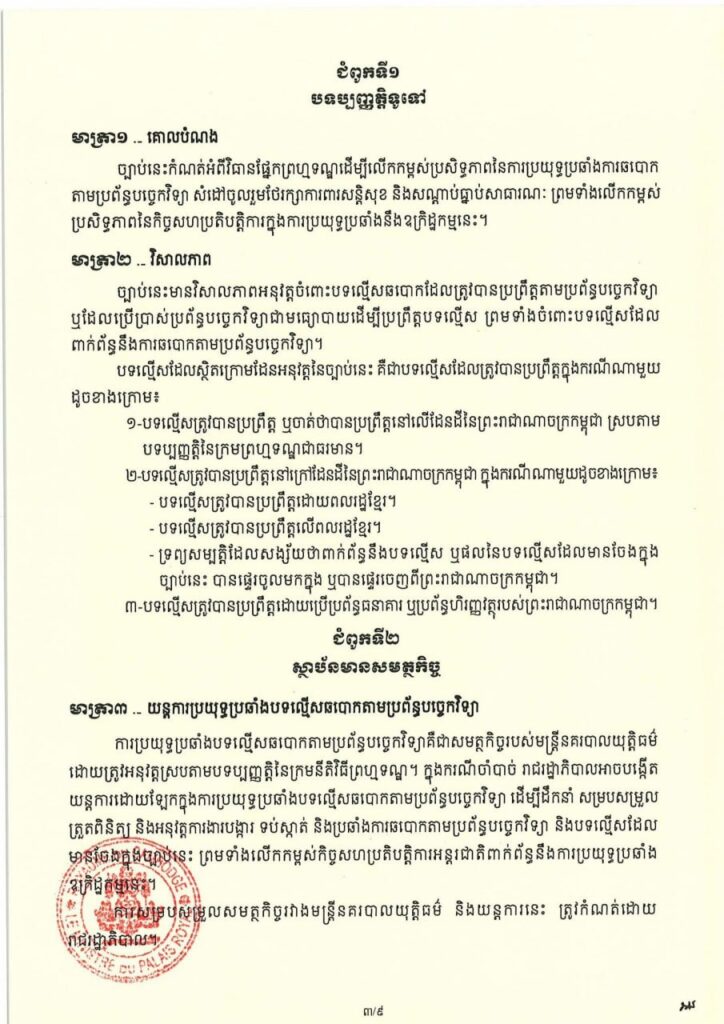 ជំពូកទី១
បទប្បញ្ញត្តិទូទៅ
មាត្រា១ .- គោលបំណង
ច្បាប់នេះកំណត់អំពីវិធានផ្នែកព្រហ្មទណ្ឌដើម្បីលើកកម្ពស់ប្រសិទ្ធភាពនៃការប្រយុទ្ធប្រឆាំងការឆបោក
តាមប្រព័ន្ធបច្ចេកវិទ្យា សំដៅចូលរួមថែរក្សាការពារសន្តិសុខ និងសណ្តាប់ធ្នាប់សាធារណៈ ព្រមទាំងលើកកម្ពស់
ប្រសិទ្ធភាពនៃកិច្ចសហប្រតិបត្តិការក្នុងការប្រយុទ្ធប្រឆាំងនឹងឧក្រិដ្ឋកម្មនេះ។
មាត្រា២ .- វិសាលភាព
ច្បាប់នេះមានវិសាលភាពអនុវត្តចំពោះបទល្មើសឆបោកដែលត្រូវបានប្រព្រឹត្តតាមប្រព័ន្ធបច្ចេកវិទ្យា
ឬដែលប្រើប្រាស់ប្រព័ន្ធបច្ចេកវិទ្យាជាមធ្យោបាយដើម្បីប្រព្រឹត្តបទល្មើស ព្រមទាំងចំពោះបទល្មើសដែល
ពាក់ព័ន្ធនឹងការឆបោកតាមប្រព័ន្ធបច្ចេកវិទ្យា។
បទល្មើសដែលស្ថិតក្រោមដែនអនុវត្តនៃច្បាប់នេះ គឺជាបទល្មើសដែលត្រូវបានប្រព្រឹត្តក្នុងករណីណាមួយ
ដូចខាងក្រោម៖
១-បទល្មើសត្រូវបានប្រព្រឹត្ត ឬចាត់ថាបានប្រព្រឹត្តនៅលើដែនដីនៃព្រះរាជាណាចក្រកម្ពុជា ស្របតាម
បទប្បញ្ញត្តិនៃក្រមព្រហ្មទណ្ឌជាធរមាន។
២-បទល្មើសត្រូវបានប្រព្រឹត្តនៅក្រៅដែនដីនៃព្រះរាជាណាចក្រកម្ពុជា ក្នុងករណីណាមួយដូចខាងក្រោម៖
- បទល្មើសត្រូវបានប្រព្រឹត្តដោយពលរដ្ឋខ្មែរ។
- បទល្មើសត្រូវបានប្រព្រឹត្តលើពលរដ្ឋខ្មែរ។
- ទ្រព្យសម្បត្តិដែលសង្ស័យថាពាក់ព័ន្ធនឹងបទល្មើស ឬផលនៃបទល្មើសដែលមានចែងក្នុង
ច្បាប់នេះ បានផ្ទេរចូលមកក្នុង ឬបានផ្ទេរចេញពីព្រះរាជាណាចក្រកម្ពុជា។
៣-បទល្មើសត្រូវបានប្រព្រឹត្តដោយប្រើប្រព័ន្ធធនាគារ ឬប្រព័ន្ធហិរញ្ញវត្ថុរបស់ព្រះរាជាណាចក្រកម្ពុជា។
ជំពូកទី២
ស្ថាប័នមានសមត្ថកិច្ច
មាត្រា៣ .- យន្តការប្រយុទ្ធប្រឆាំងបទល្មើសឆបោកតាមប្រព័ន្ធបច្ចេកវិទ្យា
ការប្រយុទ្ធប្រឆាំងបទល្មើសឆបោកតាមប្រព័ន្ធបច្ចេកវិទ្យាគឺជាសមត្ថកិច្ចរបស់មន្ត្រីនគរបាលយុត្តិធម៌
ដោយត្រូវអនុវត្តស្របតាមបទប្បញ្ញត្តិនៃក្រមនីតិវិធីព្រហ្មទណ្ឌ។ ក្នុងករណីចាំបាច់ រាជរដ្ឋាភិបាលអាចបង្កើត
យន្តការដោយឡែកក្នុងការប្រយុទ្ធប្រឆាំងបទល្មើសឆបោកតាមប្រព័ន្ធបច្ចេកវិទ្យា ដើម្បីដឹកនាំ សម្របសម្រួល
ត្រួតពិនិត្យ និងអនុវត្តការងារបង្ការ ទប់ស្កាត់ និងប្រឆាំងការឆបោកតាមប្រព័ន្ធបច្ចេកវិទ្យា និងបទល្មើសដែល
មានចែងក្នុងច្បាប់នេះ ព្រមទាំងលើកកម្ពស់កិច្ចសហប្រតិបត្តិការអន្តរជាតិពាក់ព័ន្ធនឹងការប្រយុទ្ធប្រឆាំង
ឧក្រិដ្ឋកម្មនេះ។
ការសម្របសម្រួលសមត្ថកិច្ចរវាងមន្ត្រីនគរបាលយុត្តិធម៌ និងយន្តការនេះ ត្រូវកំណត់ដោយ
រាជរដ្ឋាភិបាល។
LE MINISTRE DU PALAIS ROYAL
៣/៩